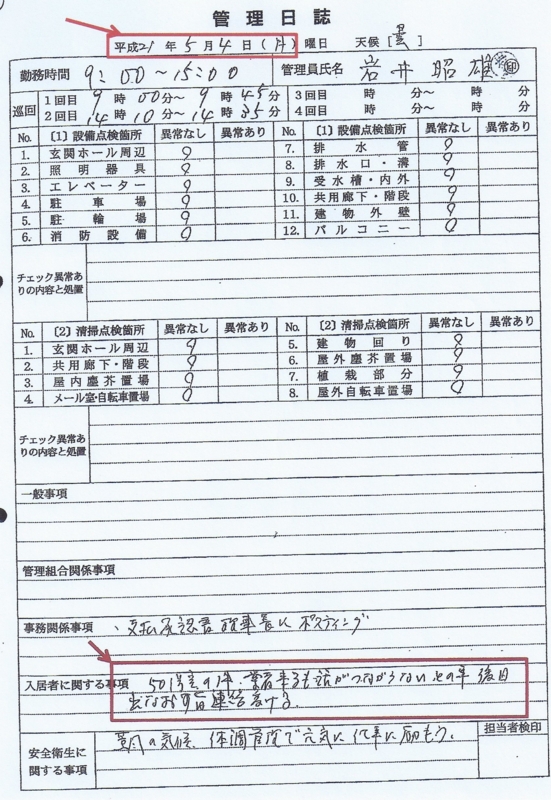 管理日誌
平成21年5月4日(月)曜日 天候[曇]
勤務時間 9:00～15:00 管理員氏名 岩井昭雄 ㊞
巡回 1回目 9時00分～9時45分 3回目 時 分～ 時 分
2回目 14時10分～14時35分 4回目 時 分～ 時 分
No. [1]設備点検箇所 異常なし 異常あり No. [1]設備点検箇所 異常なし 異常あり
1. 玄関ホール周辺 7. 排水管
2. 照明器具 8. 排水口・溝
3. エレベーター 9. 受水槽・内外
4. 駐車場 10. 共用廊下・階段
5. 駐輪場 11. 建物外壁
6. 消防設備 12. バルコニー
チェック異常あ
りの内容と処置
No. [2]清掃点検箇所 異常なし 異常あり No. [2]清掃点検箇所 異常なし 異常あり
1. 玄関ホール周辺 5. 建物回り
2. 共用廊下・階段 6. 屋外塵芥置場
3. 屋内塵芥置場 7. 植栽部分
4. メール室・自転車置場 8. 屋外自転車置場
チェック異常あ
りの内容と処置
一般事項
管理組合関係事項
事務関係事項 、支払承認書 理事長にポスティング
入居者に関する事項 501号室の件、業者 も話がつながらないとの事 後日
出なおす旨連絡受ける。
安全衛生に の気候、体調 で元気に仕事に励もう。 担当者検印
関する事項